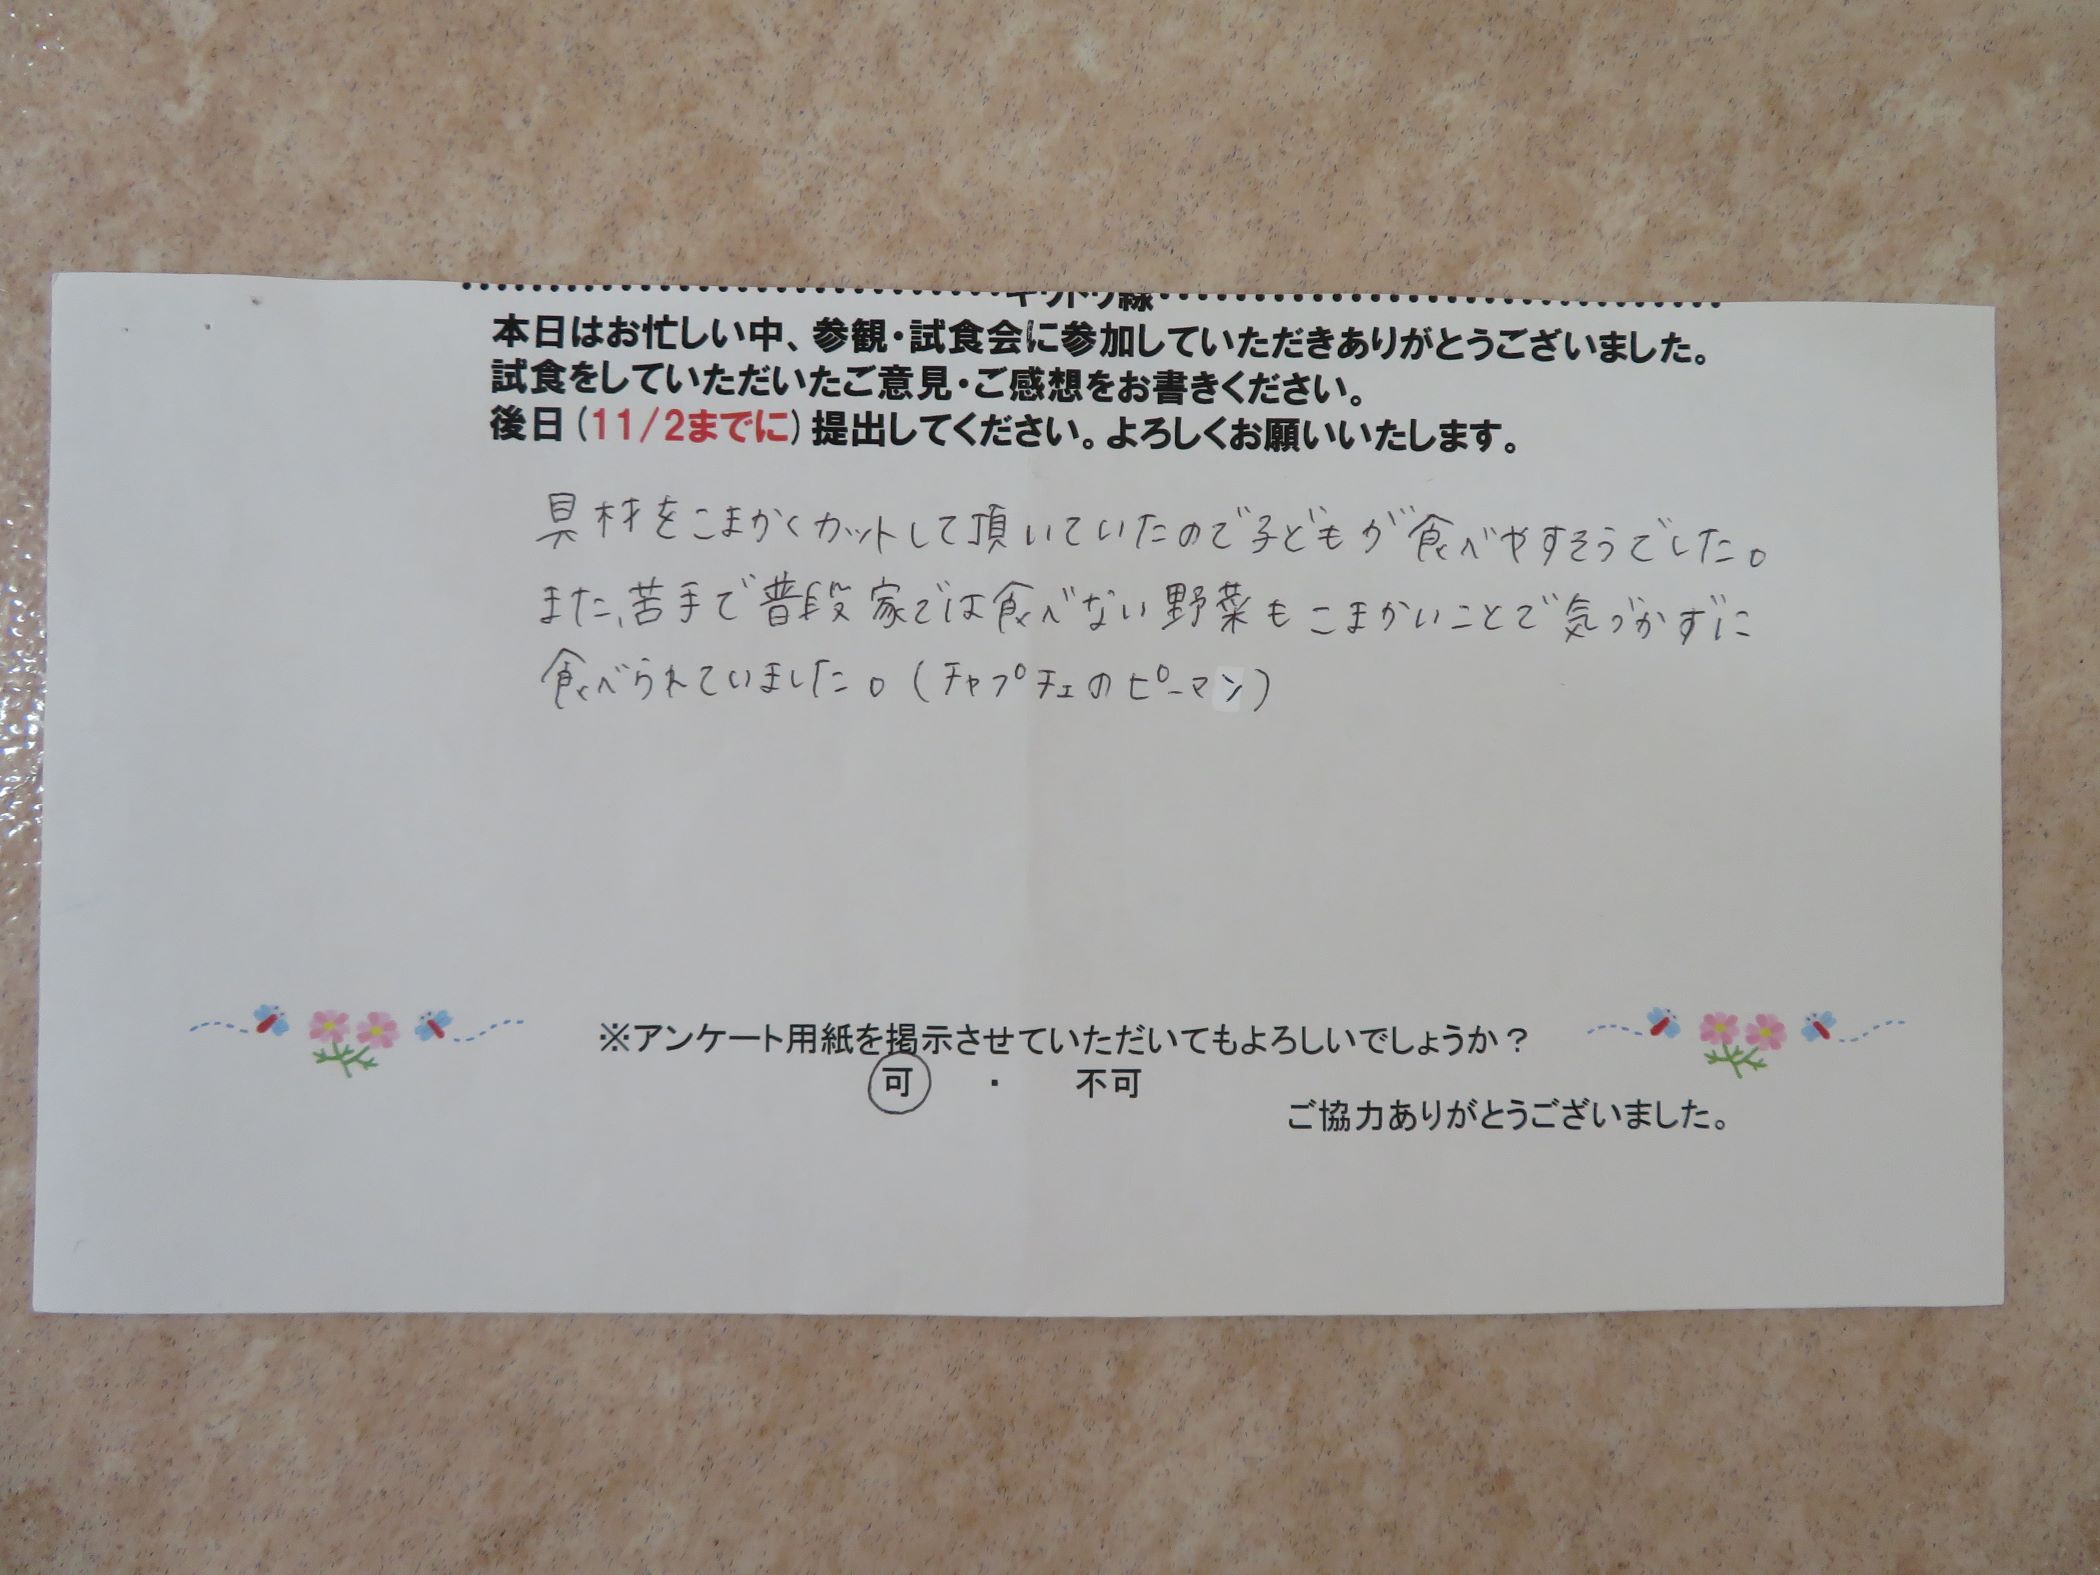 キリトリ線
本日はお忙しい中、参観・試食会に参加していただきありがとうございました。
試食をしていただいたご意見・ご感想をお書きください。
後日(11/2までに)提出してください。よろしくお願いいたします。
具材をこまかくカットして頂いていたので子どもが食べやすそうでした。
また、苦手で普段家では食べない野菜もこまかいことで気づかずに
食べられていました。(チャプチェのピーマン)
※アンケート用紙を掲示させていただいてもよろしいでしょうか？
可 ・ 不可
ご協力ありがとうございました。